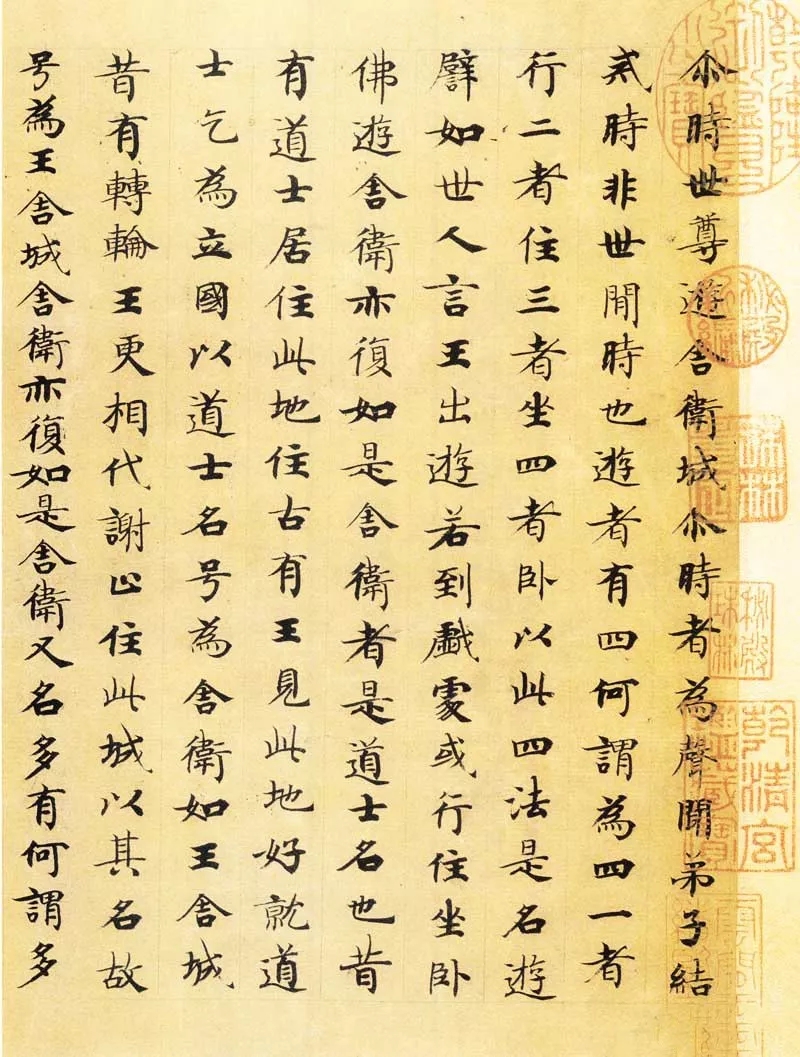 尒時世尊遊舍衛城尒時者為聲聞弟子結
戒時非世間時也遊者有四何謂為四一者
行二者住三者坐四者卧以此四法是名遊
譬如世人言王出遊若到戲處或行住坐卧
佛遊舍衛亦復如是舍衛者是道士名也昔
有道士居住此地住古有王見此地好就道
士乞為立國以道士名号為舍衛如王舍城
昔有轉輪王更相代謝止住此城以其名故
号為王舍城舍衛亦復如是舍衛又名多有何謂多
秘殿新編
秘殿珠林
乾清宮鑒藏寶